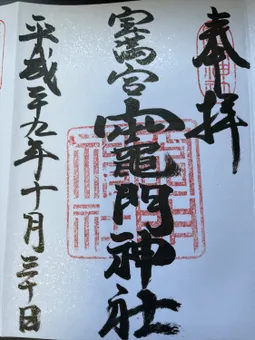 奉拝
宝満宮竈門神社
平成二十九年十月三十日